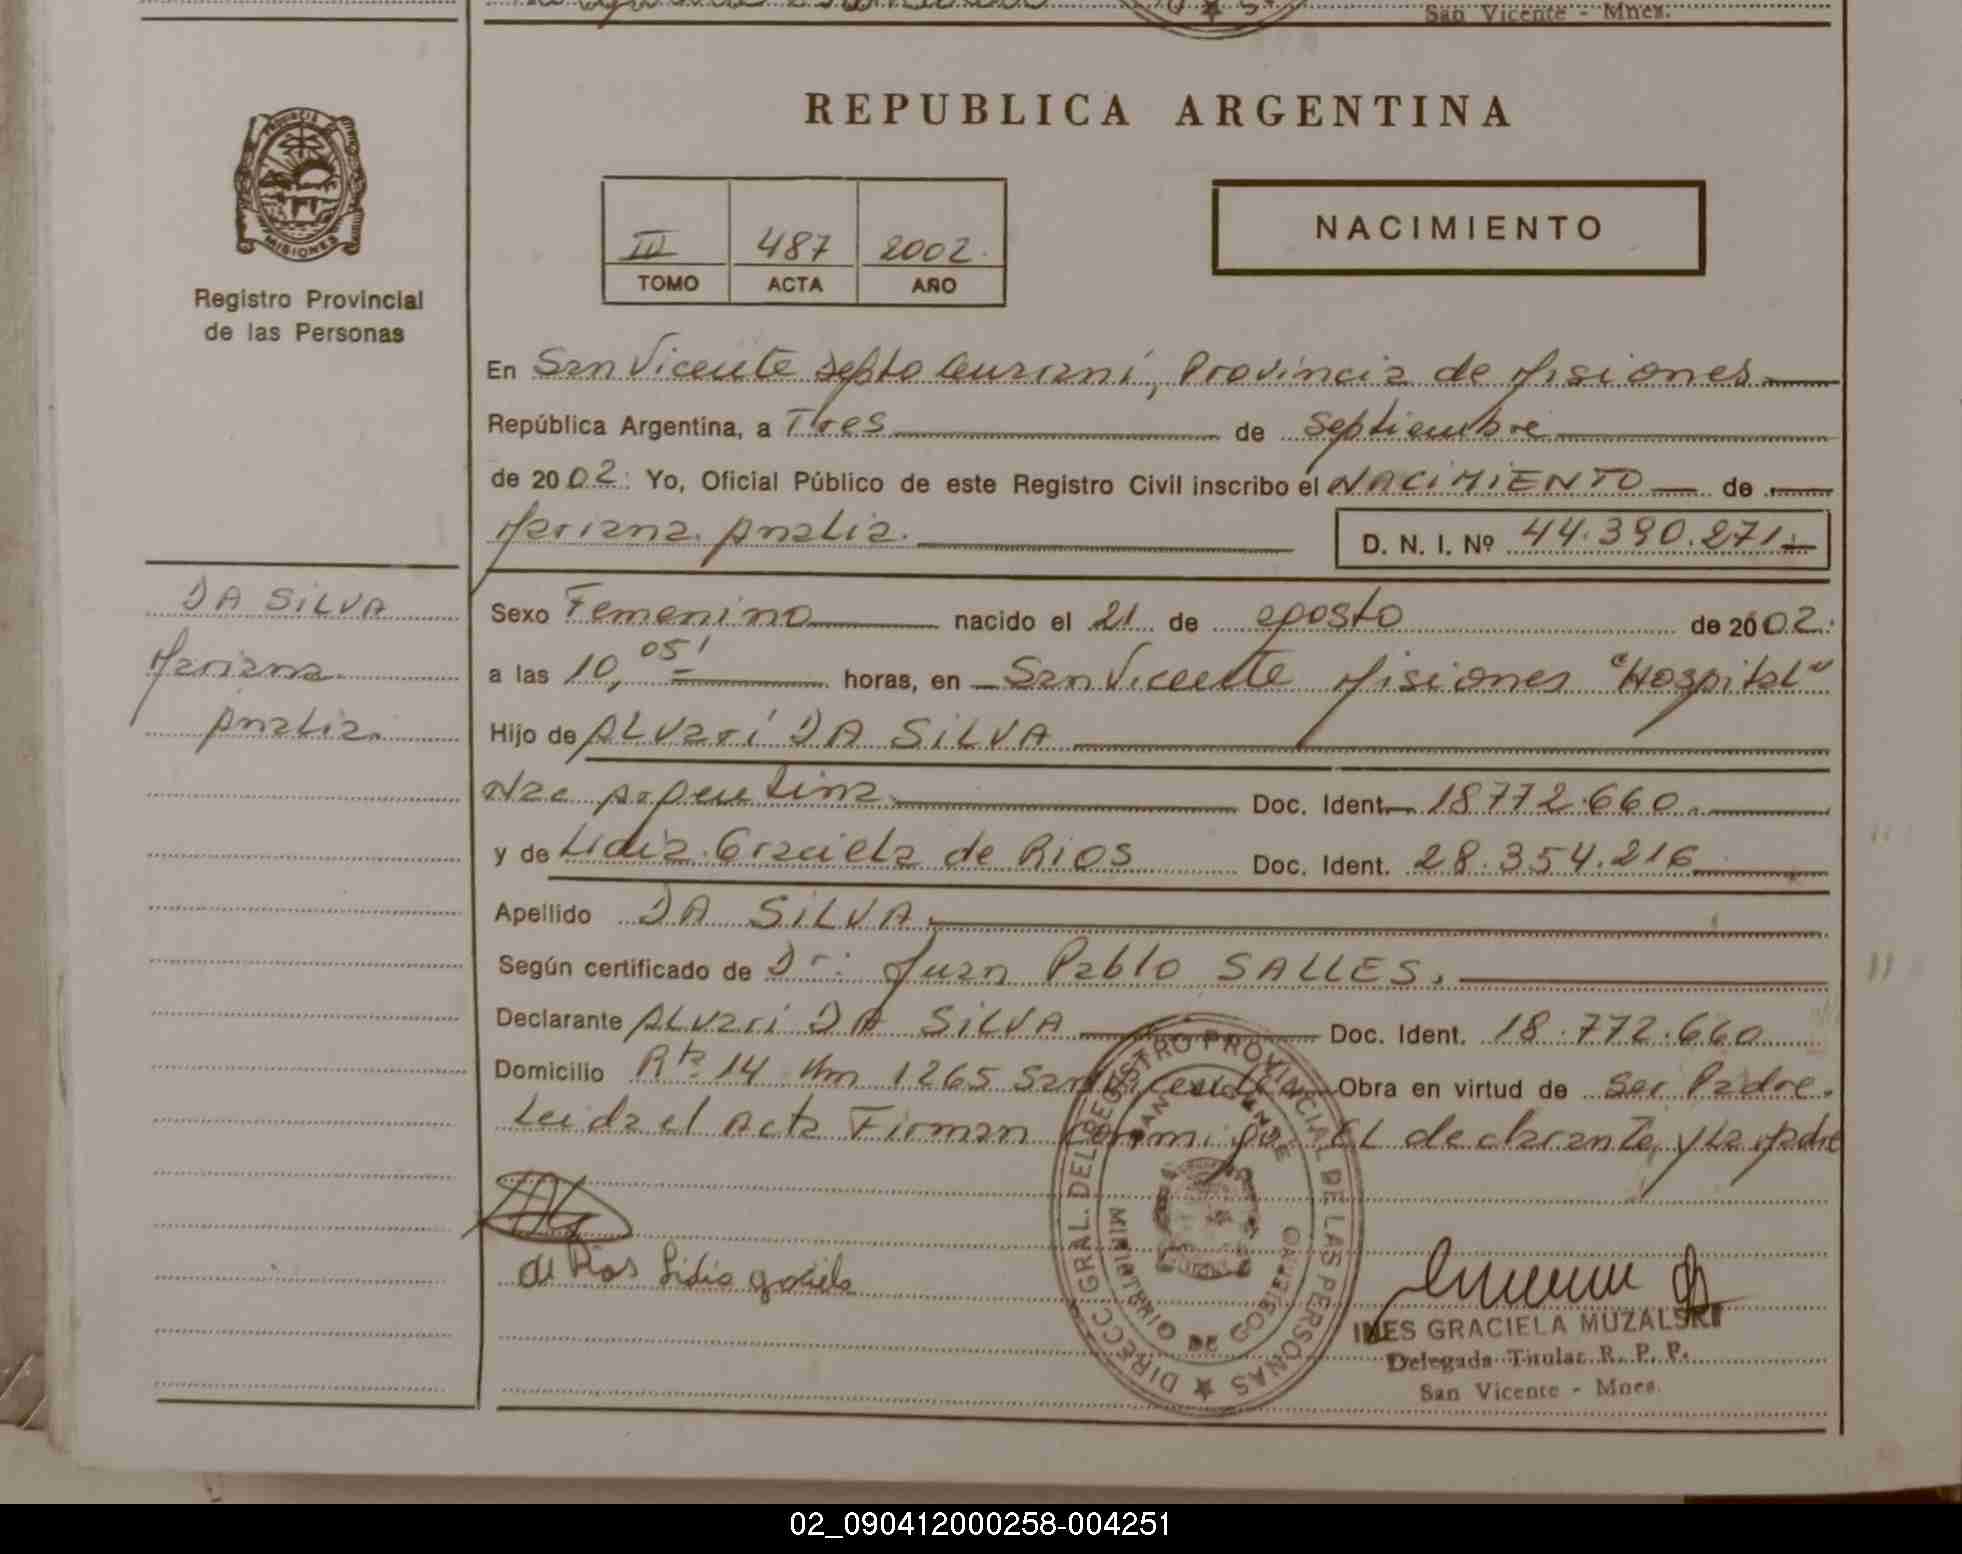 San Vicente - Mnes.
REPUBLICA ARGENTINA
PROVINCIA DE MISIONES
Registro Provincial
de las Personas
III 487 2002.
TOMO ACTA AÑO
NACIMIENTO
En San Vicente Depto Guaraní, Provincia de Misiones
República Argentina, a Tres de Septiembre
de 2002. Yo, Oficial Público de este Registro Civil inscribo el NACIMIENTO de
Mariana Analia. D. N. I. Nº 44.390.271
DA SILVA
Mariana
Analia.
Sexo Femenino nacido el 21 de agosto de 2002.
a las 10,05' horas, en San Vicente Misiones "Hospital"
Hijo de ALvarí DA SILVA
Nac Argentina Doc. Ident. 18772.660.
y de Lidia Graciela de Rios Doc. Ident. 28.354.216
Apellido DA SILVA.
Según certificado de Dr: Juan Pablo SALLES.
Declarante ALvari DA SILVA Doc. Ident. 18.772.660
Domicilio Rta 14 Km 1265 San Vicente Obra en virtud de Ser Padre.
Leida el Acta Firman conmigo EL declarante y La Madre
de Rios Lidia graciela
DIRECC. GRAL. DEL REGISTRO PROVINCIAL DE LAS PERSONAS
SAN VICENTE
MINISTERIO DE GOBIERNO
INES GRACIELA MUZALSKI
Delegada Titular R. P. P.
San Vicente - Mnes.
02_090412000258-004251